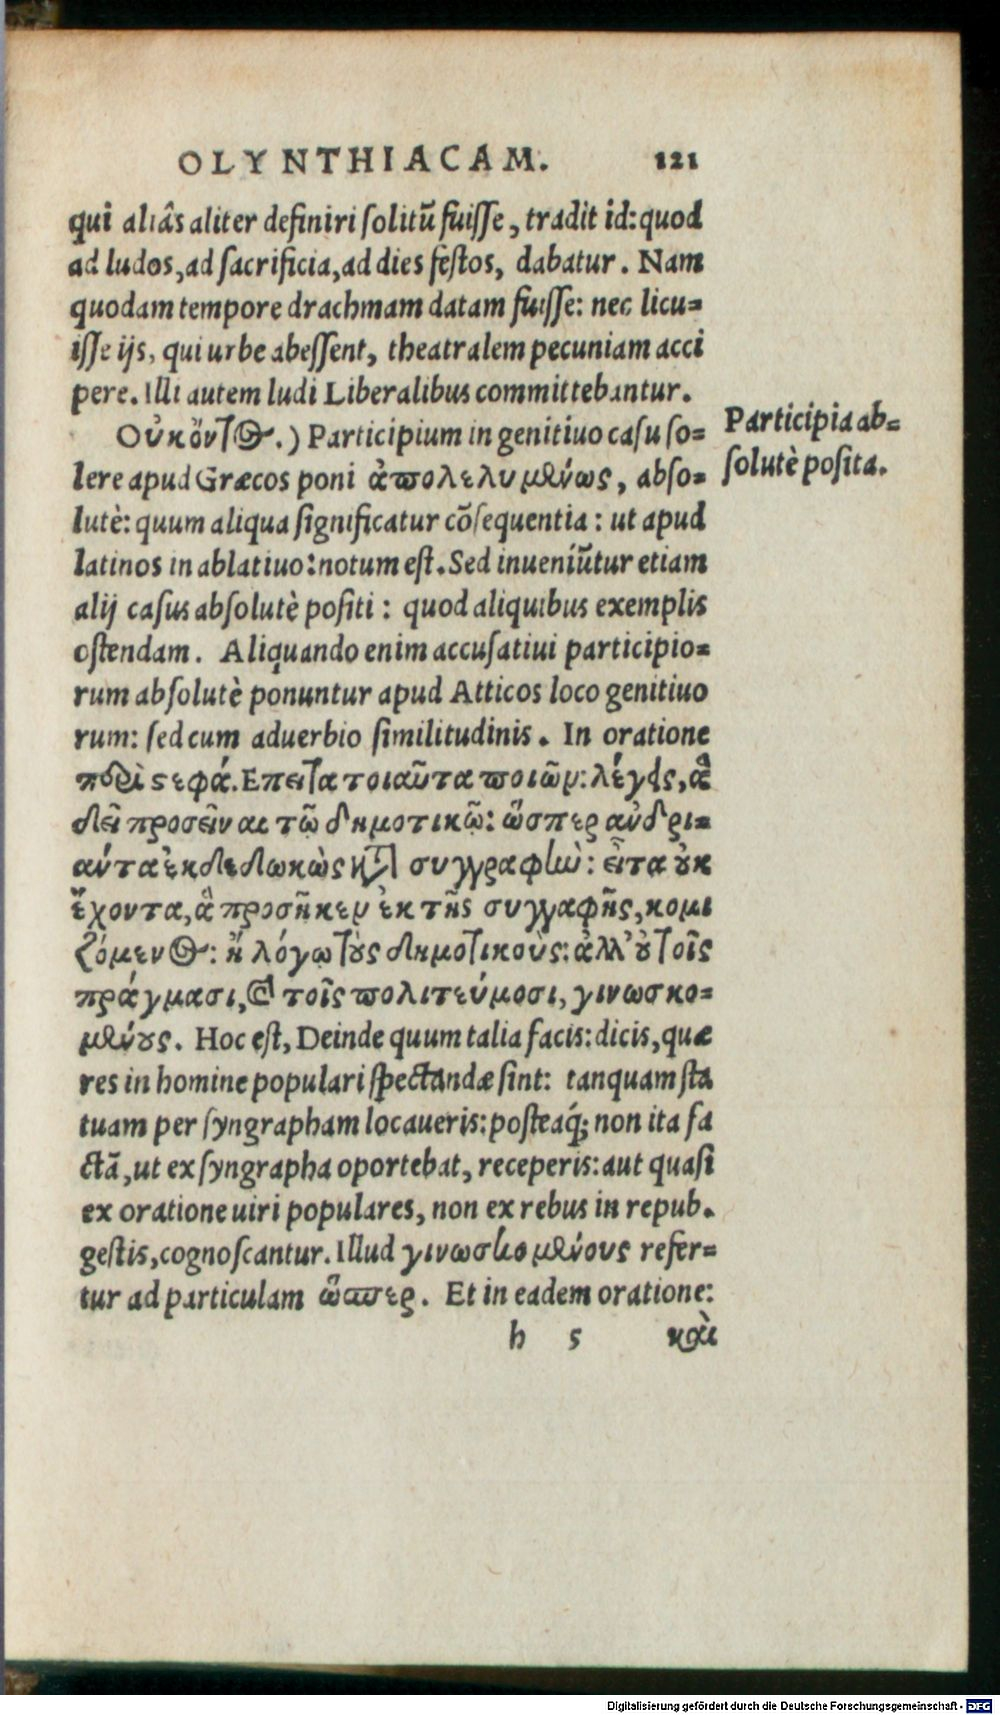 OLYNTHIACAM. 121
qui aliâs aliter definiri ſolitũ fuiſſe, tradit id: quod
ad ludos, ad ſacrificia, ad dies feſtos, dabatur. Nam
quodam tempore drachmam datam fuiſſe: nec licu=
iſſe ijs, qui urbe abeſſent, theatralem pecuniam acci
pere. Illi autem ludi Liberalibus committebantur.
Οὐκ ὄντος.) Participium in genitiuo caſu ſo=
lere apud Græcos poni ἀπολελυμένως, abſo=
lutè: quum aliqua ſignificatur cõſequentia: ut apud
latinos in ablatiuo: notum eſt. Sed inueniũtur etiam
alij caſus abſolutè poſiti: quod aliquibus exemplis
oſtendam. Aliquando enim accuſatiui participio=
rum abſolutè ponuntur apud Atticos loco genitiuo
rum: ſed cum aduerbio ſimilitudinis. In oratione
περὶ ςεφά. Επειτα τοιαῦτα ποιῶν: λέγεις, ἃ
δεῖ προσεῖναι τῷ δημοτικῷ: ὥσπερ ἀνδρι=
άντα ἐκδεδωκὼς κατὰ συγγραφὴν: εἶτα ȣκ
ἔχοντα, ἃ προσῆκεν ἐκ τῆς συγγαφῆς, κομι
ζόμενος: ἢ λόγῳ τȣς δημοτικοὺς: ἀλλ' ȣ τοῖς
πράγμασι, καὶ τοῖς πολιτεύμοσι, γινωσκο=
μένȣς. Hoc eſt, Deinde quum talia facis: dicis, quæ
res in homine populari ſpectandæ ſint: tanquam ſta
tuam per ſyngrapham locaueris: poſteaq́; non ita fa
ctã, ut ex ſyngrapha oportebat, receperis: aut quaſi
ex oratione uiri populares, non ex rebus in repub.
geſtis, cognoſcantur. Illud γινωσκομένους refer=
tur ad particulam ὥσπερ. Et in eadem oratione:
h 5 καὶ
Participia ab=
ſolutè poſita.
Digitalisierung gefördert durch die Deutsche Forschungsgemeinschaft - DFG